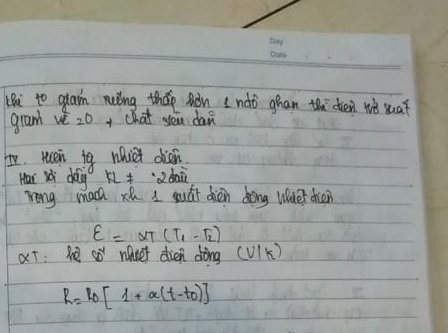 Day
Date
khi to giảm xuống thấp hơn 1 ndộ ghạn thì điện trở suất
giảm về =0, chất siêu dẫn
IV. Hiện tg nhiệt điện
Hai sợi dây KL ≠ 2 đầu
Trong mạch xh 1 suất điện động nhiệt điện
ε = αT (T1 - T2)
αT: hệ số nhiệt điện động (V/K)
R = R0 [1 + α(t-t0)]